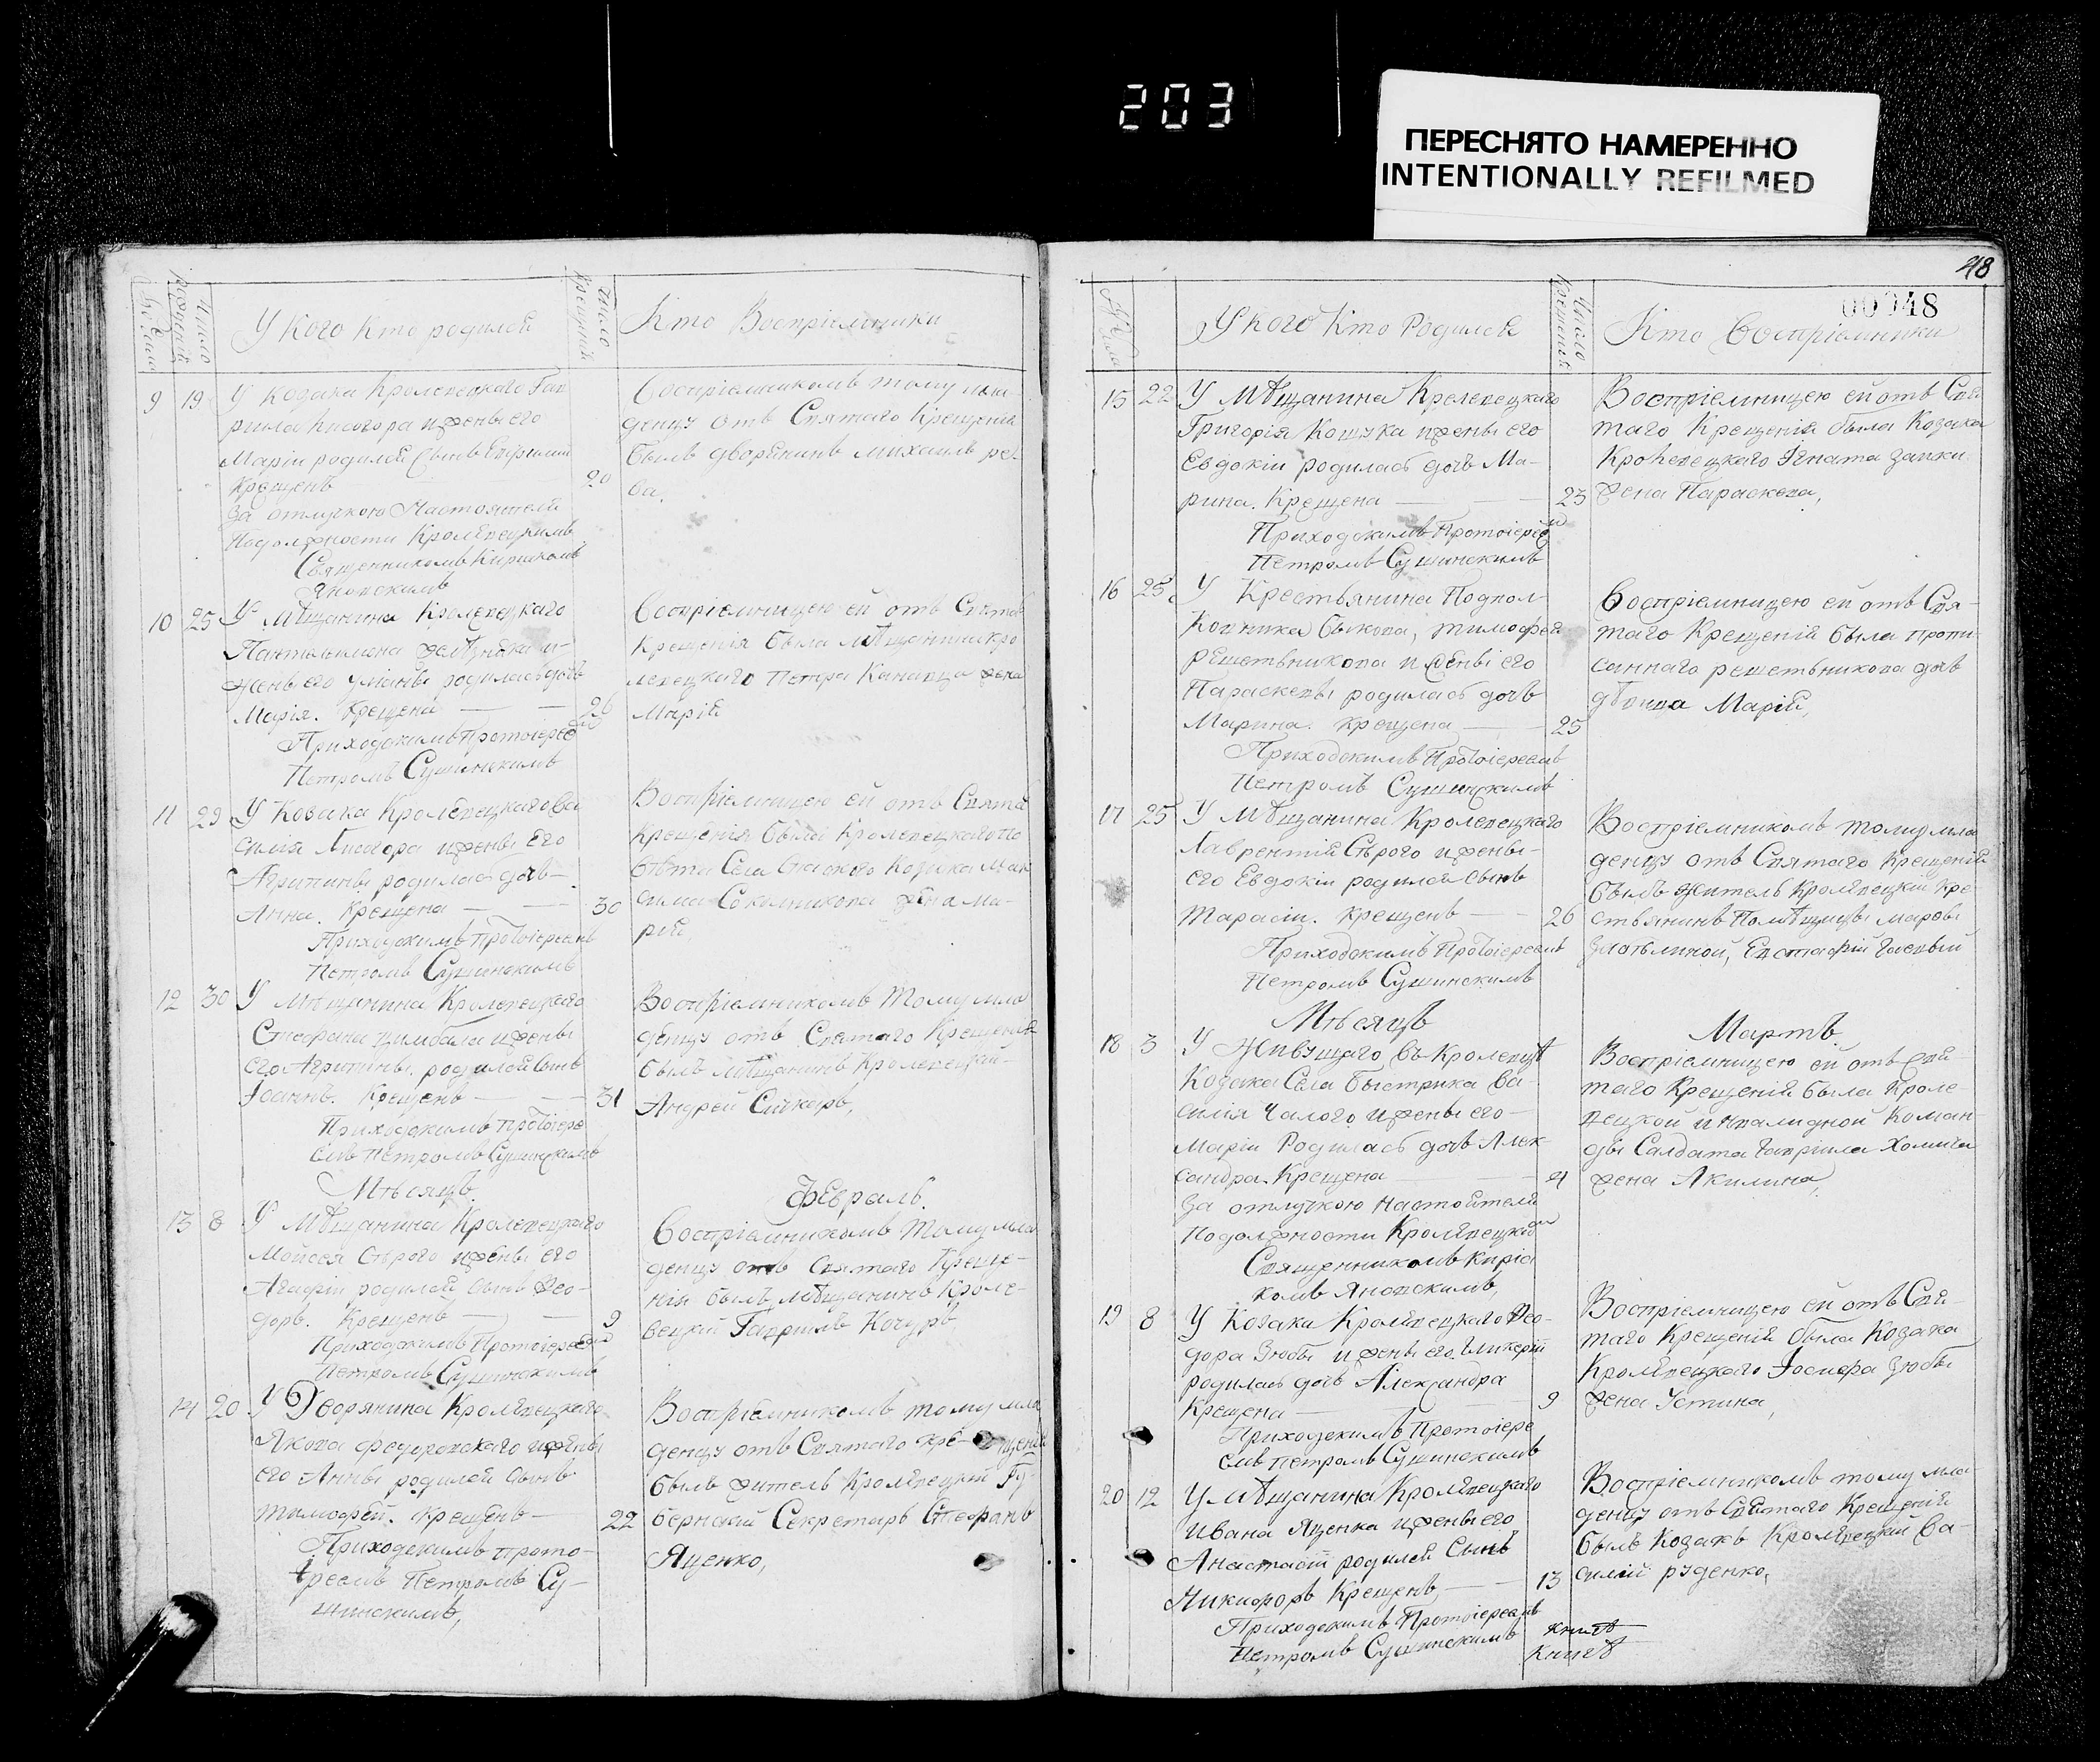 203
ПЕРЕСНЯТО НАМЕРЕННО
INTENTIONALLY REFILMED
48
00048
Число рожденія
У Кого Кто родился
Число Крещенія
Кто Воспріемники
9 19 У Козака Кролевецкаго Гав
рила Лисогора и жены его
Маріи родился Сынъ
Крещенъ 20
За отлучкою Настоятеля
По должности Кролевецкимъ
Священникомъ Киріакомъ
Яновскимъ
Воспріемникомъ тому мла-
денцу отъ Святаго Крещенія
былъ дворянинъ Михаилъ ре-
ва.
10 25 У Мѣщанина Кролевецкаго
Пантелимона и-
жены его родилась дочь
Марія. Крещена — — 26
Приходскимъ Протоіерео
Петромъ Сушинскимъ
Воспріемницею ей отъ Святаго
Крещенія была мѣщанина кро
левецкаго Петра жена
Марія
11 29 У Козака Кролевецкаго Ва
силія Лисогора и жены Его
Агрипины родилась дочь —
Анна. Крещена — — 30
Приходскимъ протоіереемъ
Петромъ Сушинскимъ
Воспріемницею ей отъ Святаго
Крещенія была Кролевецкаго по
вѣта Села Козака Мак
сима Сокольникова жена Ма-
рія,
12 30 У Мѣщанина Кролевецкаго
Стефана Цимбала и жены
его Агрипины родился Сынъ
Іоаннъ. Крещенъ — — 31
Приходскимъ протоіере
емъ Петромъ Сушинскимъ
Воспріемникомъ тому мла
денцу отъ Святаго Крещенія
былъ Мѣщанинъ Кролевецкій —
Андрей Сичкарь,
Мѣсяцъ. Февраль.
13 8 У Мѣщанина Кролевецкаго
Мойсея Сѣрого и жены Его
Агафіи родился сынъ Фео-
доръ. Крещенъ — — 9
Приходскимъ Протоіерее
Петромъ Сушинскимъ
Воспріемникомъ тому мла
денцу отъ Святаго Креще-
нія былъ мѣщанинъ Кроле-
вецкій Гавріилъ Кочуръ,
14 20 У Дворянина Кролевецкаго
Якова федоровскаго и жены
его Анны родился Сынъ
тимофей. Крещенъ — 22
Приходскимъ прото-
іреемъ Петромъ Су-
шинскимъ,
Воспріемникомъ тому мла
денцу отъ Святаго кре-щенія
былъ житель Кролевецкій Гу-
бернскій Секретарь Стефанъ
Яценко,
У Кого Кто Родился
Число Крещенія
Кто Воспріемники
15 22 У Мѣщанина Кролевецкаго
Григорія Кошука и жены его
Евдокіи родилась дочь Ма-
рина. Крещена — — 23
Приходскимъ Протоіерее
Петромъ Сушинскимъ
Воспріемницею ей отъ Свя
таго Крещенія была Козака
Кролевецкаго Игната Заики
жена Параскева,
16 25 У Крестьянина Подпол
ковника Быкова, тимофея
решетьникова и жены его
Параскевы родилась дочь
Марина. Крещена — 25
Приходскимъ Протоіереемъ
Петромъ Сушинскимъ
Воспріемницею ей отъ Свя-
таго Крещенія была пропи
саннаго решетьникова дочь
дѣвица Марія,
17 25 У Мѣщанина Кролевецкаго
Лаврентія Сѣрого и жены-
его Евдокіи родился сынъ
Тарасій. Крещенъ — — 26
Приходскимъ Протоіереемъ
Петромъ Сушинскимъ
Воспріемникомъ тому мла
денцу отъ Святаго Крещенія
былъ житель Кролевецкій кре
стьянинъ Помѣщицы
Евстафій
Мѣсяцъ Мартъ.
18 3 У Живущаго въ Кролевцѣ
Козака Села Быстрика Ва-
силія Чалого и жены его —
Маріи Родилась дочь Алек
сандра. Крещена — — 4
За отлучкою настоятеля
По должности Кролевецки
Священникомъ Киріа
комъ Яновскимъ,
Воспріемницею ей отъ Свя
таго Крещенія была Кроле
вецкой инвалидной Коман-
ды Салдата Гавріила Хомича
жена Акилина,
19 8 У Козака Кролевецкаго Фео-
дора Зюбы и жены его Гликеріи
родилась дочь Александра
Крещена — 9
Приходскимъ Протоіере
емъ Петромъ Сушинскимъ
Воспріемницею ей отъ Свя-
таго Крещенія была Козака
Кролевецкаго Іосифа Зюбы
жена Устина,
20 12 У Мѣщанина Кролевецкаго
Ивана Яценка и жены его
Анастасіи родился Сынъ
Никифоръ Крещенъ — — 13
Приходскимъ Протоіереемъ
Петромъ Сушинскимъ
Воспріемникомъ тому мла
денцу отъ Святаго Крещенія
былъ Козакъ Кролевецкій Ва-
силій руденко,